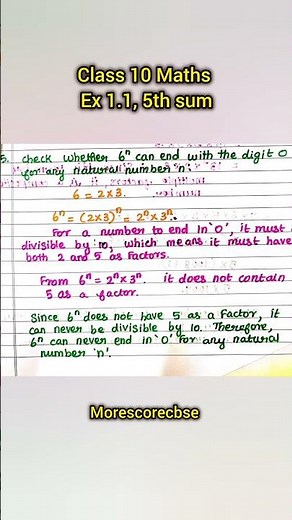 Class 10 Maths
Ex 1.1, 5th sum
5. check whether 6ⁿ can end with the digit 0
for any natural number 'n'.
6 = 2×3.
6ⁿ = (2×3)ⁿ = 2ⁿ×3ⁿ.
For a number to end in '0', it must
divisible by 10, which means it must have
both 2 and 5 as factors.
From 6ⁿ = 2ⁿ×3ⁿ. it does not contain
5 as a factor.
Since 6ⁿ does not have 5 as a Factor, it
can never be divisible by 10. Therefore,
6ⁿ can never end in '0' for any natural
number 'n'.
Morescorecbse